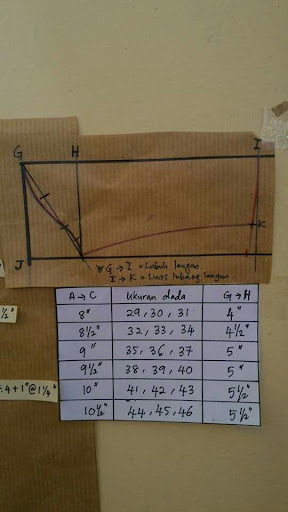 G H I
K
J
* G → I = Labuh lengan.
I → K = Luas lubang lengan.
A → C Ukuran dada G → H
8" 29, 30, 31 4"
8½" 32, 33, 34 4½"
9" 35, 36, 37 5"
9½" 38, 39, 40 5"
10" 41, 42, 43 5½"
10½" 44, 45, 46 5½"
½"
4+1"@1¼"